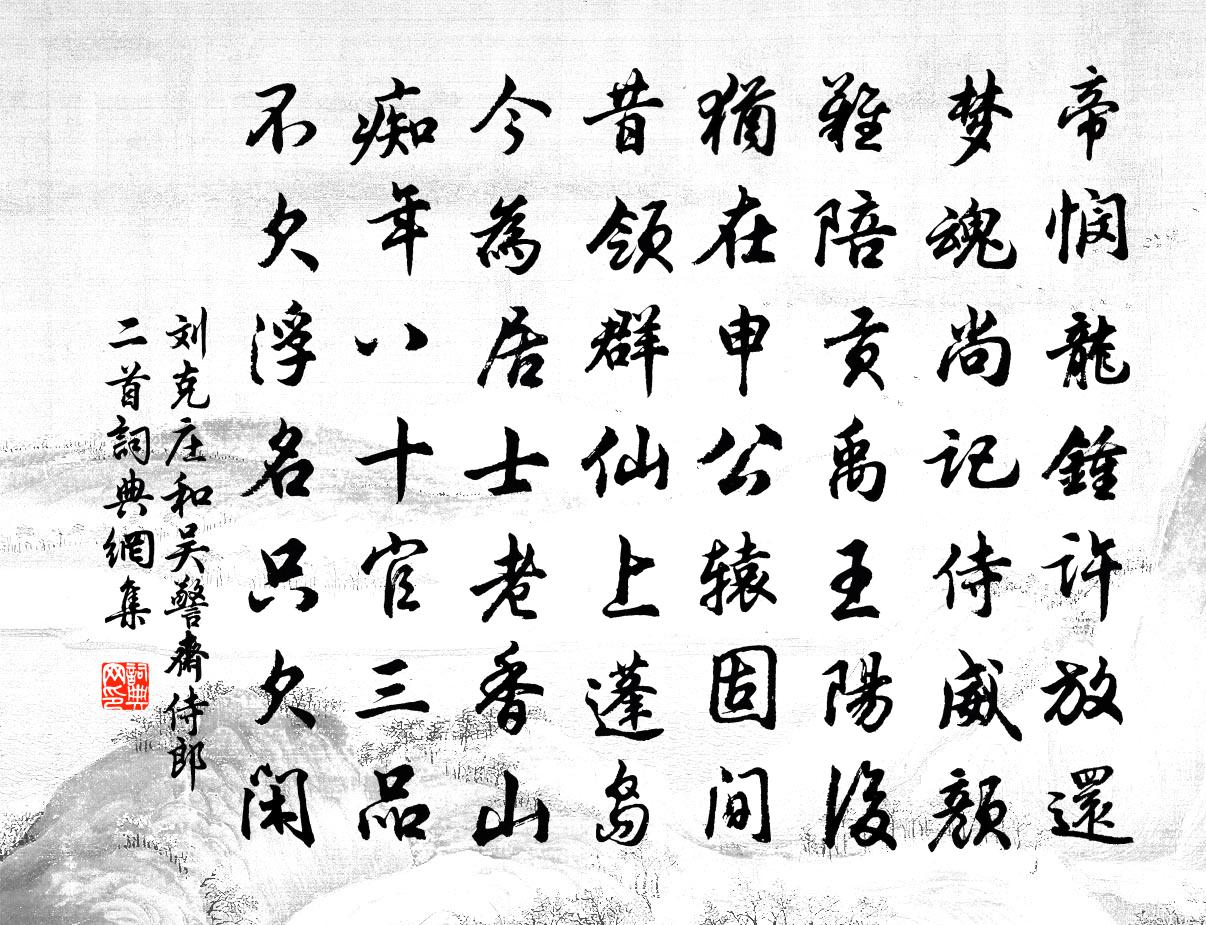 帝悯龍鍾许放還
梦魂尚记侍威顔
難陪贡禹王陽後
猶在申公辕固间
昔领群仙上蓬岛
今為居士老香山
痴年八十官三品
不欠浮名只欠闲
刘克庄和吴警齋侍郎
二首詞典網集
詞典网印